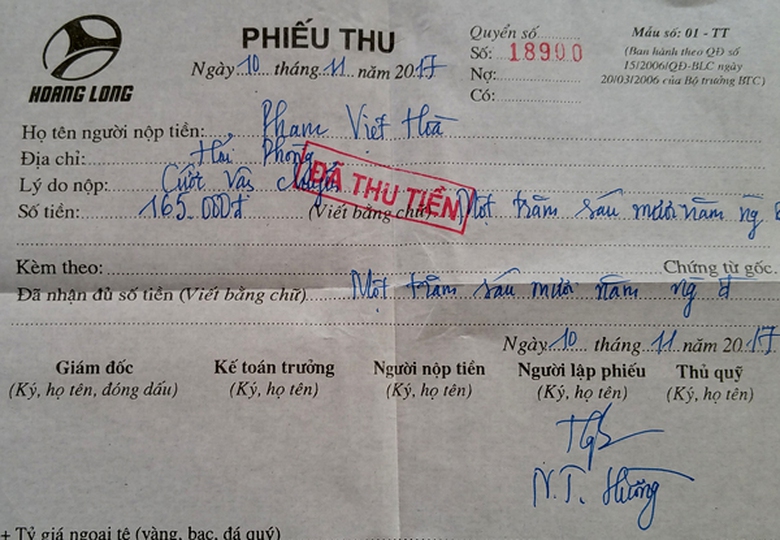 HOANG LONG
PHIẾU THU
Ngày 10 tháng 11 năm 2017
Quyển số
Số: 18900
Nợ:
Có:
Mẫu số: 01 - TT
(Ban hành theo QĐ số
15/2006/QĐ-BLC ngày
20/03/2006 của Bộ trưởng BTC)
Họ tên người nộp tiền: Phạm Việt Hoà
Địa chỉ: Hải Phòng
Lý do nộp: Cước vận chuyển
ĐÃ THU TIỀN
Số tiền: 165.000đ (Viết bằng chữ) Một trăm sáu mươi năm ng đ
Kèm theo: Chứng từ gốc.
Đã nhận đủ số tiền (Viết bằng chữ) Một trăm sáu mươi năm ng đ
Ngày 10 tháng 11 năm 2017
Giám đốc Kế toán trưởng Người nộp tiền Người lập phiếu Thủ quỹ
(Ký, họ tên, đóng dấu) (Ký, họ tên) (Ký, họ tên) (Ký, họ tên) (Ký, họ tên)
N.T. Hường
+ Tỷ giá ngoại tệ (vàng, bạc, đá quý)